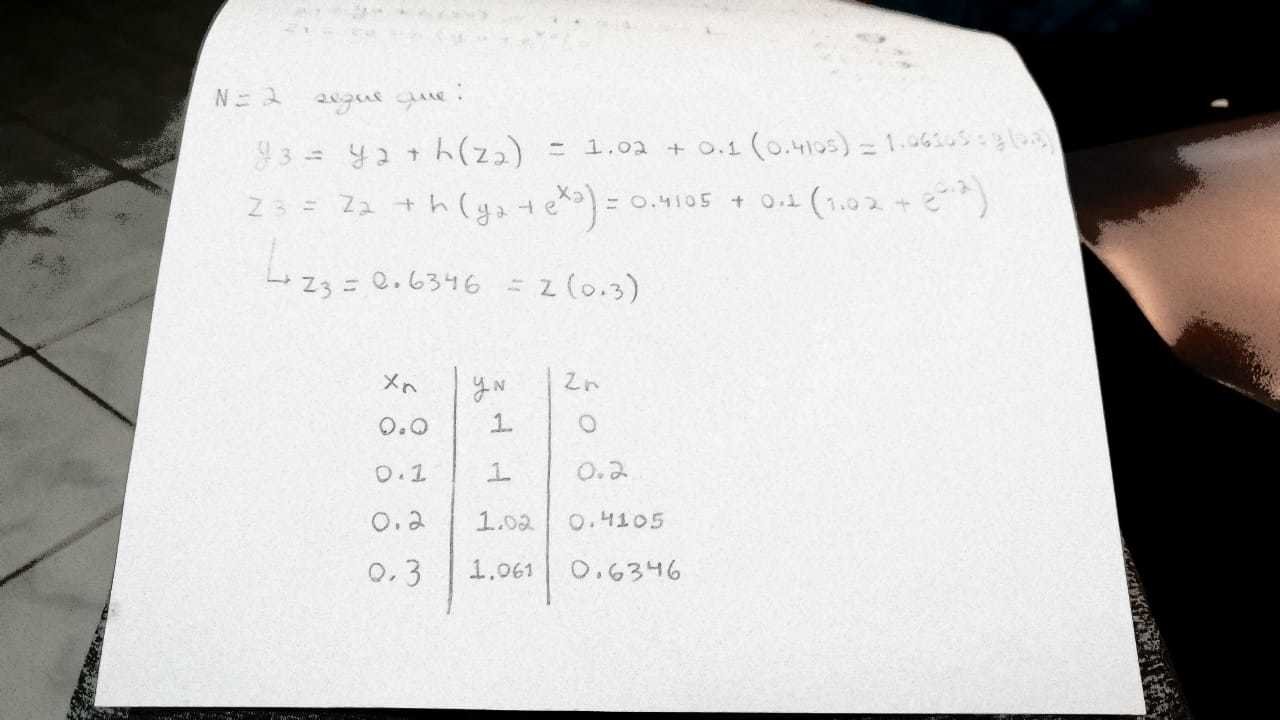 N = 2 segue que:
y3 = y2 + h(z2) = 1.02 + 0.1(0.4105) = 1.06105 = y(0.3)
z3 = z2 + h(y2 + e^x2) = 0.4105 + 0.1(1.02 + e^0.2)
↳ z3 = 0.6346 = z(0.3)
xn | yN | zn
0.0 | 1 | 0
0.1 | 1 | 0.2
0.2 | 1.02 | 0.4105
0.3 | 1.061 | 0.6346